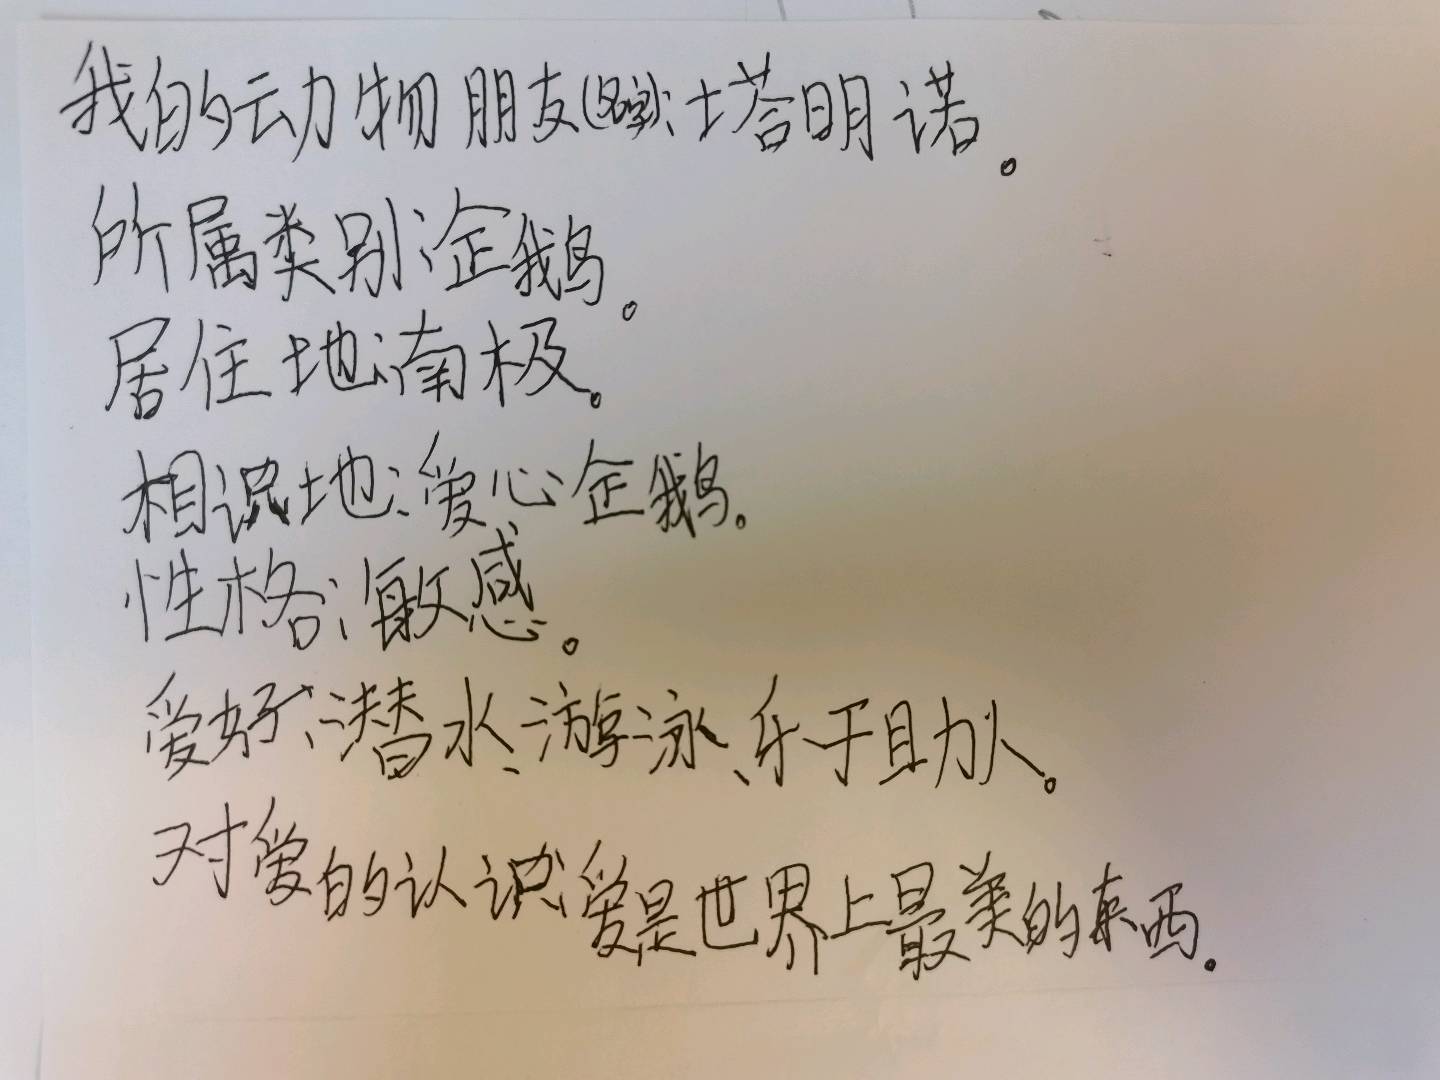 我的动物朋友(名字):塔明诺。
所属类别:企鹅。
居住地:南极。
相识地:爱心企鹅。
性格:敏感。
爱好:潜水、游泳、乐于助人。
对爱的认识:爱是世界上最美的东西。